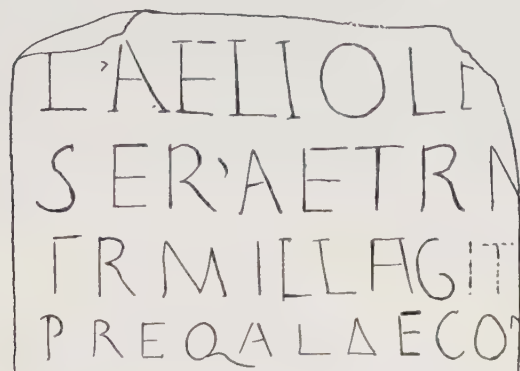 L'AELIOL
SER'AETRN
TRMILLAGIT
PREQALAECO